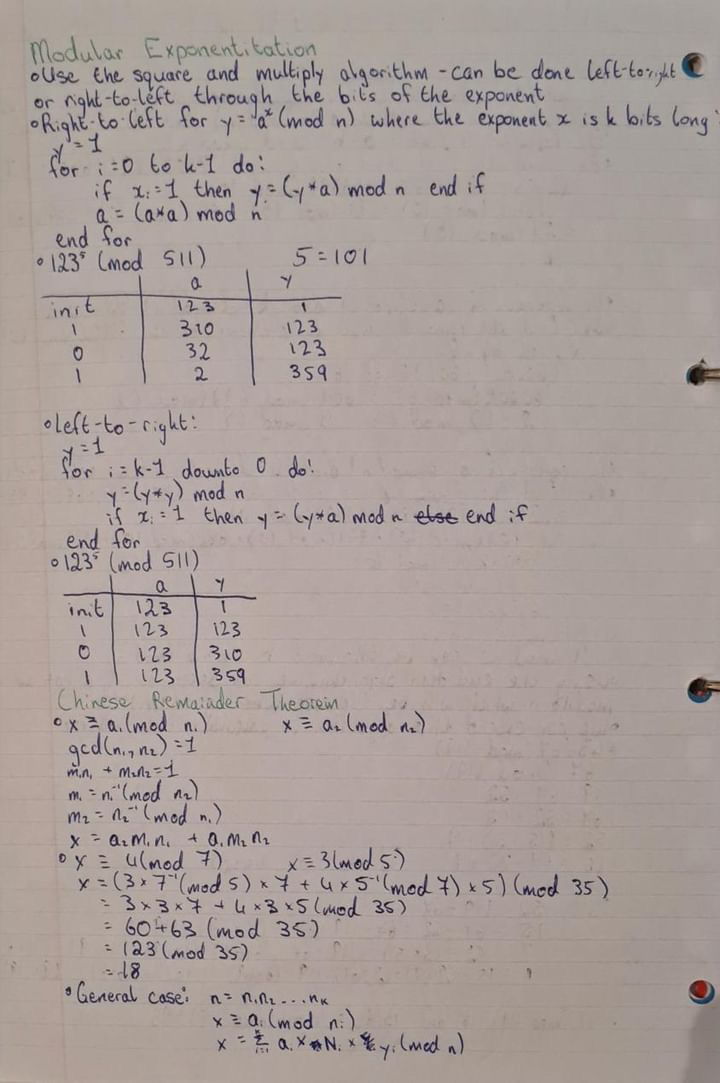 Modular Exponentitation
o Use the square and multiply algorithm - can be done left-to-right
or right-to-left through the bits of the exponent
o Right-to-left for y = aˣ (mod n) where the exponent x is k bits long:
y = 1
for i = 0 to k-1 do:
if xᵢ = 1 then y = (y*a) mod n end if
a = (a*a) mod n
end for
o 123⁵ (mod 511) 5 = 101
a y
init 123 1
1 310 123
0 32 123
1 2 359
o Left-to-right:
y = 1
for i = k-1 downto 0 do:
y = (y*y) mod n
if xᵢ = 1 then y = (y*a) mod n else end if
end for
o 123⁵ (mod 511)
a y
init 123 1
1 123 123
0 123 310
1 123 359
Chinese Remainder Theorem
o x ≡ a₁ (mod n₁) x ≡ a₂ (mod n₂)
gcd(n₁, n₂) = 1
m₁n₁ + m₂n₂ = 1
m₁ = n₁⁻¹ (mod n₂)
m₂ = n₂⁻¹ (mod n₁)
x = a₂m₁n₁ + a₁m₂n₂
o x ≡ 4 (mod 7) x ≡ 3 (mod 5)
x = (3 × 7⁻¹ (mod 5) × 7 + 4 × 5⁻¹ (mod 7) × 5) (mod 35)
= 3 × 3 × 7 + 4 × 3 × 5 (mod 35)
= 60 + 63 (mod 35)
= 123 (mod 35)
= 18
o General case: n = n₁n₂ .... nₖ
x ≡ aᵢ (mod nᵢ)
x = Σ aᵢ × Nᵢ × yᵢ (mod n)